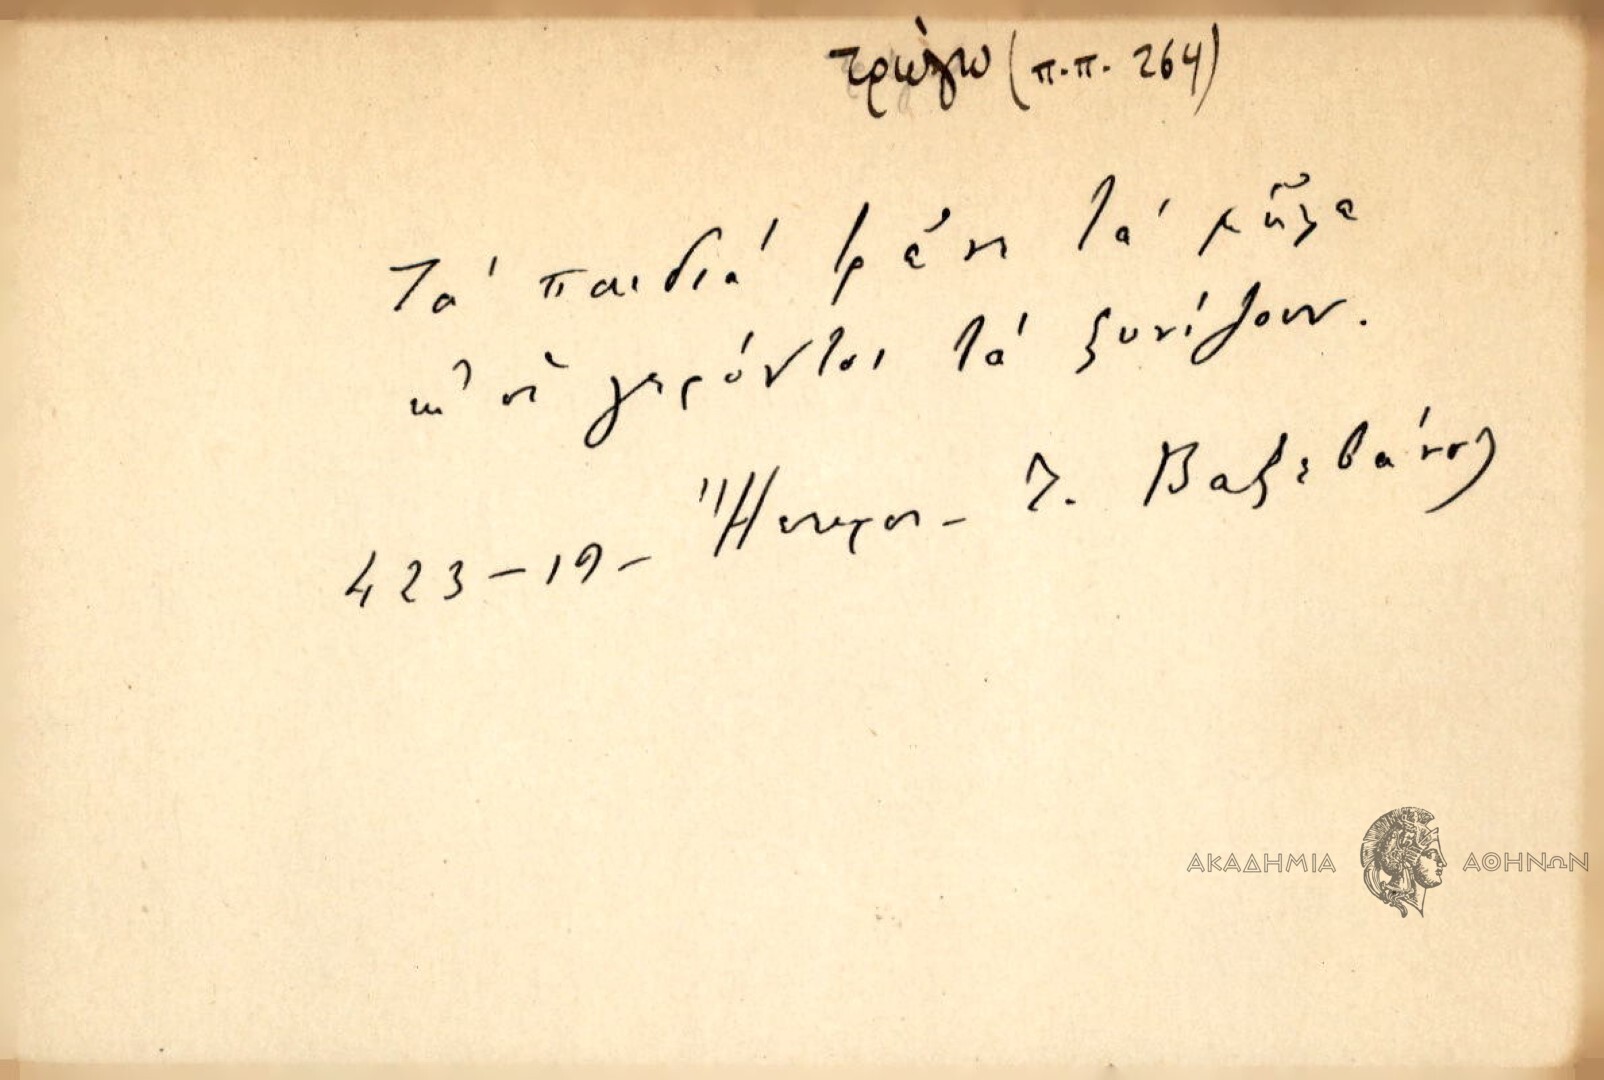 τρώγω (π.π. 264)
Τά παιδιά τρῶνε τά μῆλα
κι' οἱ γερόντοι τά ξυνίζουν.
423-19- Ἤπειρος- Ἰ. Βαξεβάνος
ΑΚΑΔΗΜΙΑ ΑΘΗΝΩΝ